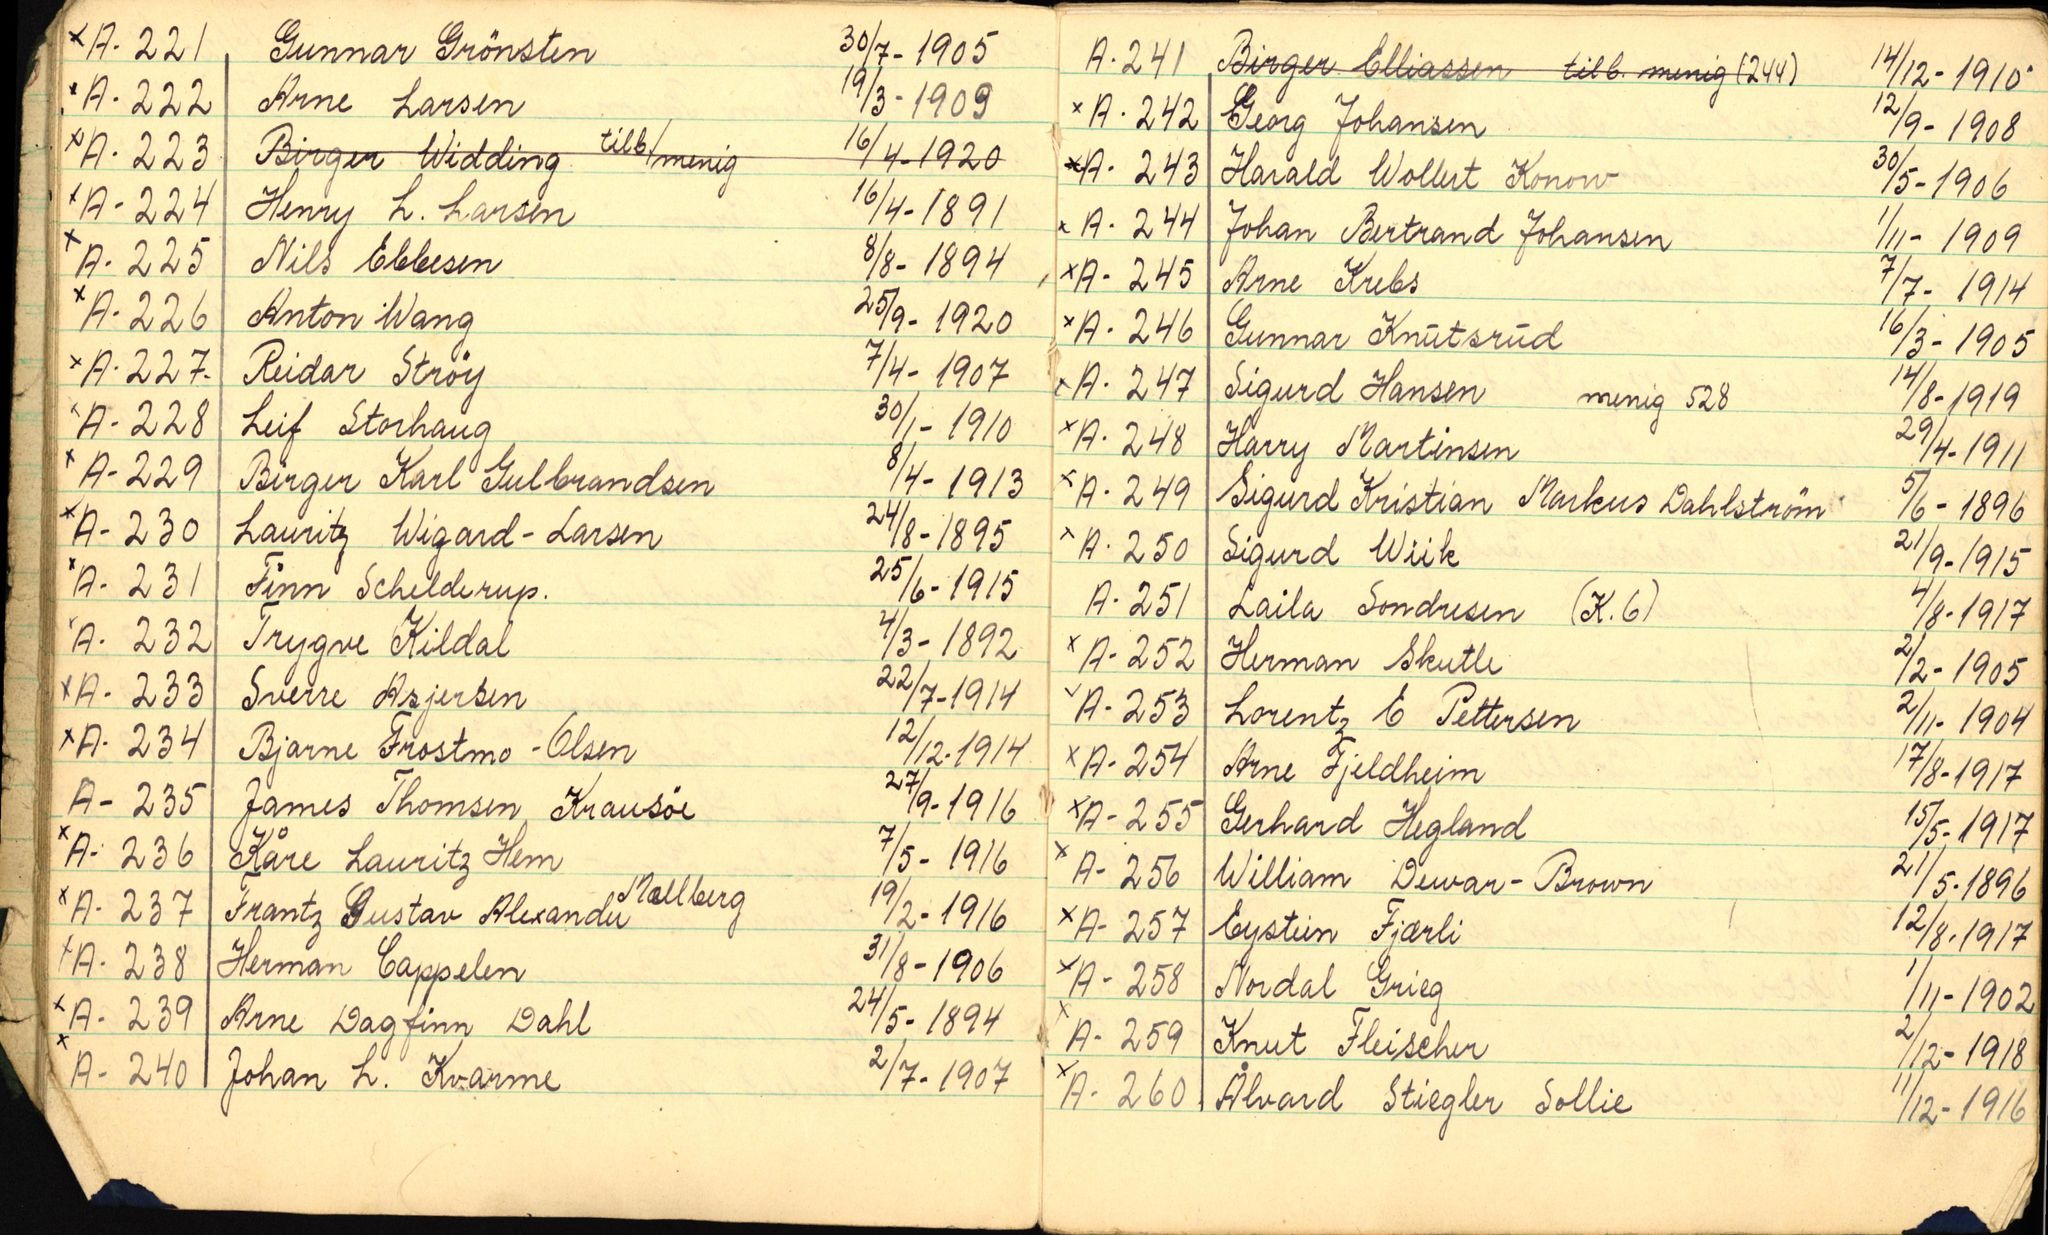 x A. 221 Gunnar Grönsten 30/7 - 1905
x A. 222 Arne Larsen 19/3 - 1909
x A. 223 Birger Widding tilb/menig 16/4 - 1920
x A - 224 Henry L. Larsen 16/4 - 1891
x A. 225 Nils Ebbesen 8/8 - 1894
x A. 226 Anton Wang 25/9 - 1920
x A. 227. Reidar Ströy 7/4 - 1907
x A. 228 Leif Storhaug 30/1 - 1910
x A - 229 Birger Karl Gulbrandsen 8/4 - 1913
x A - 230 Lauritz Wigard - Larsen 24/8 - 1895
x A. 231 Finn Schelderup. 25/6 - 1915
x A. 232 Trygve Kildal 4/3 - 1892
x A - 233 Sverre Asjersen 22/7 - 1914
x A. 234 Bjarne Frostmo - Olsen 12/12 - 1914
A - 235 James Thomsen Krausöe 27/9 - 1916
x A. 236 Kåre Lauritz Hem 7/5 - 1916
x A. 237 Frantz Gustav Alexander Mællberg 19/2 - 1916
x A. 238 Herman Cappelen 31/8 - 1906
x A. 239 Arne Dagfinn Dahl 24/5 - 1894
x A - 240 Johan L. Kvarme 2/7 - 1907
A. 241 Birger Elliassen tilb. menig (244) 14/12 - 1910
x A. 242 Georg Johansen 12/9 - 1908
x A. 243 Harald Wollert Konow 30/5 - 1906
x A. 244 Johan Bertrand Johansen 1/11 - 1909
x A. 245 Arne Krebs 7/7 - 1914
x A. 246 Gunnar Knutsrud 16/3 - 1905
x A. 247 Sigurd Hansen menig 528 14/8 - 1919
x A. 248 Harry Martinsen 29/4 - 1911
x A. 249 Sigurd Kristian Markus Dahlström 5/6 - 1896
x A. 250 Sigurd Wiik 21/9 - 1915
A. 251 Laila Sondresen (K. 6) 4/8 - 1917
x A - 252 Herman Skutle 2/2 - 1905
x A. 253 Lorentz E Pettersen 2/11 - 1904
x A - 254 Arne Fjeldheim 17/8 - 1917
x A - 255 Gerhard Hegland 15/5 - 1917
x A - 256 William Dewar - Brown 21/5 - 1896
x A - 257 Eystein Fjærli 12/8 - 1917
x A - 258 Nordal Grieg 1/11 - 1902
x A - 259 Knut Fleischer 2/12 - 1918
x A - 260 Ålvard Stiegler Sollie 11/12 - 1916